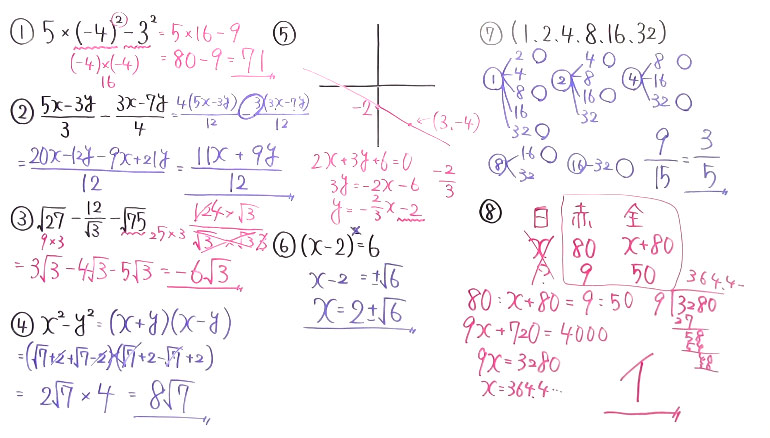 ① 5×(-4)²-3² = 5×16-9
(-4)×(-4) = 80-9=71
16
② 5x-3y/3 - 3x-7y/4 = 4(5x-3y)/12 - 3(3x-7y)/12
= 20x-12y-9x+21y/12 = 11x+9y/12
③ √27 - 12/√3 - √75
9×3
25×3
= 3√3-4√3-5√3 = -6√3
④ x²-y² = (x+y)(x-y)
= (√7+2+√7-2)(√7+2-√7+2)
= 2√7×4 = 8√7
⑤
-2
(3,-4)
2x+3y+6=0
3y=-2x-6
y=-2/3x-2
-2/3
⑥ (x-2)²=6
x-2 = ±√6
x=2±√6
⑦ (1.2.4.8.16.32)
① 2 ○
4
8 ○
16
32 ○
② 4 ○
8
16 ○
32
④ 8 ○
16
32 ○
⑧ 16 ○
32
⑯-32 ○
9/15 = 3/5
⑧ 白 赤 全
x 80 x+80
? 9 50
80:x+80=9:50
9x+720=4000
9x=3280
x=364.4…
364.4-
9 3280
27
58
54
38
イ